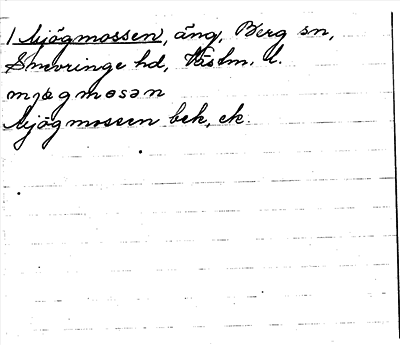 1 Mjögmossen, äng, Berg sn,
Snevringe hd, Västm. l.
mjögmosən
Mjögmossen bek, ek.